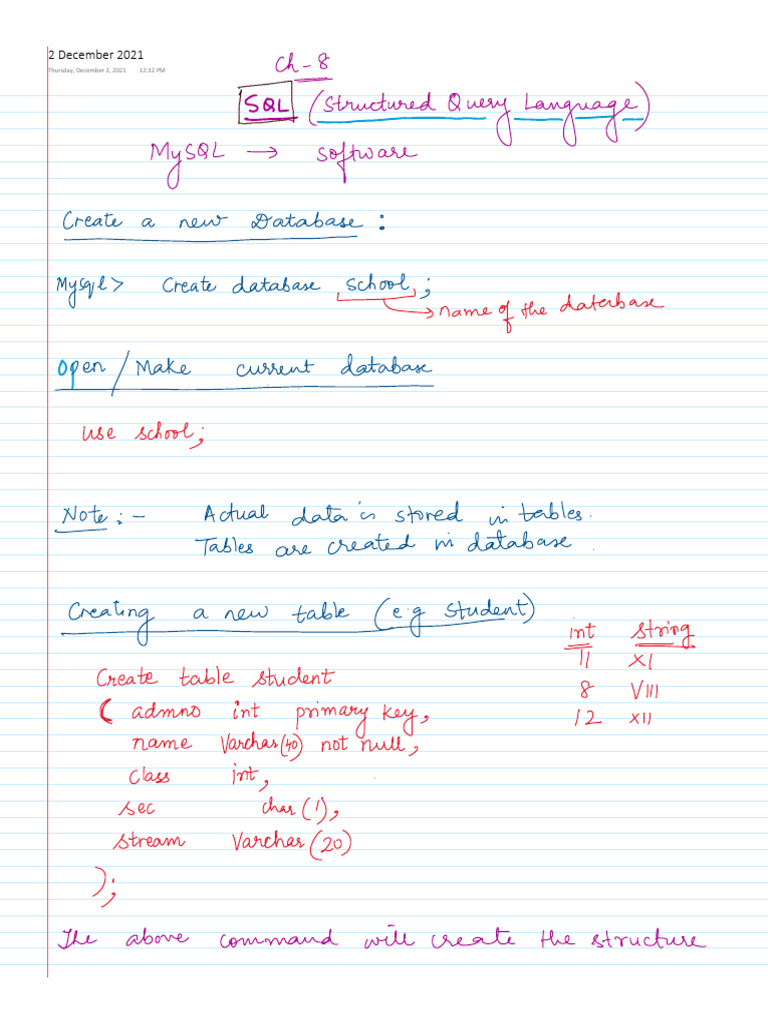 2 December 2021
Thursday, December 2, 2021 12:12 PM
Ch-8
SQL (Structured Query Language)
MySQL → software
Create a new Database:
Mysql> Create database school;
→ name of the daterbase
Open/Make current database
use school;
Note:- Actual data is stored in tables.
Tables are created in database.
Creating a new table (e.g student)
int string
11 XI
8 VIII
12 XII
Create table student
( admno int primary key,
name Varchar(40) not null,
class int,
sec char(1),
stream Varchar(20)
);
The above command will create the structure